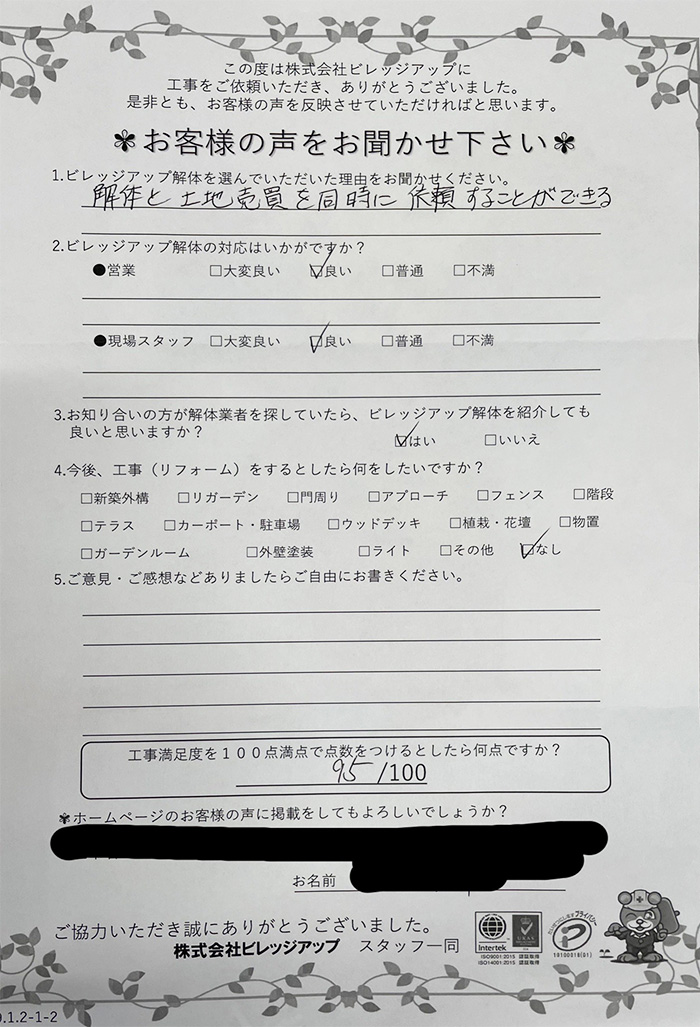 この度は株式会社ビレッジアップに
工事をご依頼いただき、ありがとうございました。
是非とも、お客様の声を反映させていただければと思います。
✾お客様の声をお聞かせ下さい✾
1.ビレッジアップ解体を選んでいただいた理由をお聞かせください。
解体と土地売買を同時に依頼することができる
2.ビレッジアップ解体の対応はいかがですか？
●営業 □大変良い ☑良い □普通 □不満
●現場スタッフ □大変良い ☑良い □普通 □不満
3.お知り合いの方が解体業者を探していたら、ビレッジアップ解体を紹介しても
良いと思いますか？
☑はい □いいえ
4.今後、工事（リフォーム）をするとしたら何をしたいですか？
□新築外構 □リガーデン □門周り □アプローチ □フェンス □階段
□テラス □カーポート・駐車場 □ウッドデッキ □植栽・花壇 □物置
□ガーデンルーム □外壁塗装 □ライト □その他 ☑なし
5.ご意見・ご感想などありましたらご自由にお書きください。
工事満足度を１００点満点で点数をつけるとしたら何点ですか？
95/100
✾ホームページのお客様の声に掲載をしてもよろしいでしょうか？
お名前
ご協力いただき誠にありがとうございました。
株式会社ビレッジアップ スタッフ一同
intertek
ISO9001:2015 認証取得
ISO14001:2015 認証取得
プライバシー
19100018(01)
.1.2-1-2